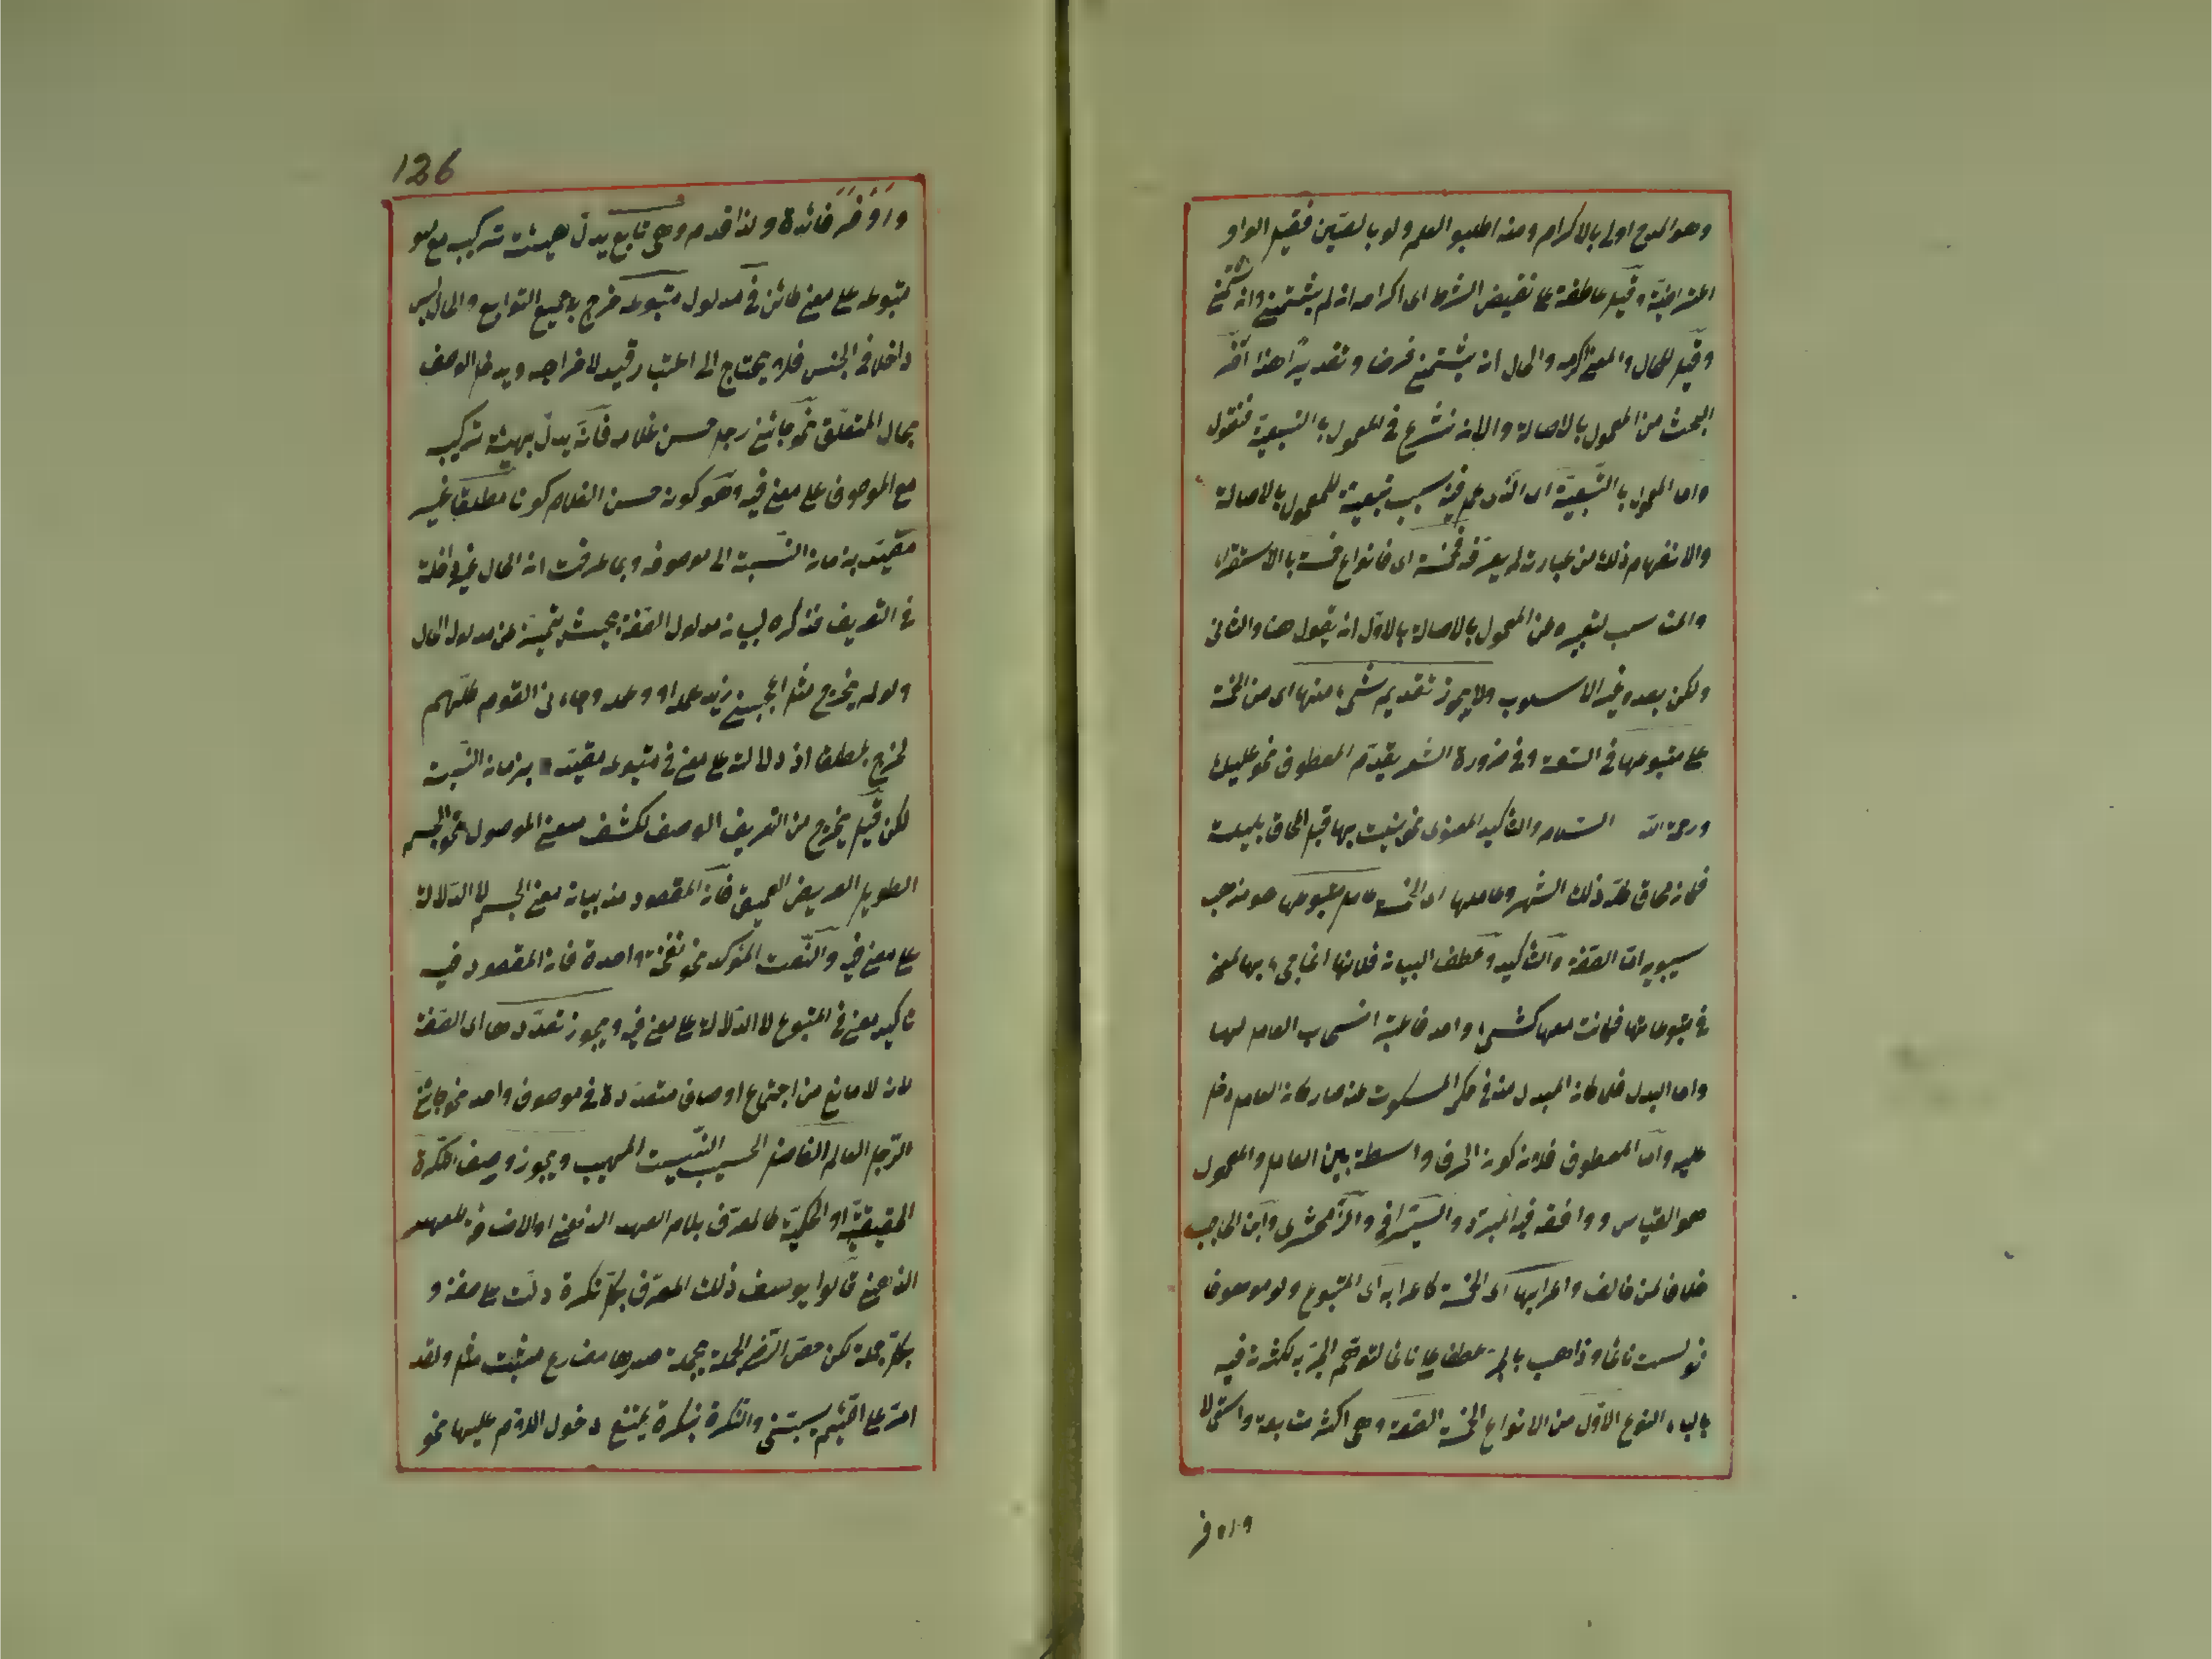 وهو المدح اولى بالاكرام ومنه اطلبوا العلم ولو بالصين فقيل الواو
اعتراضية وقيل عاطفة على نقيض الشرط اى اكرامه ان لم يشتمنى وان شتمنى
وقيل للحال والمعنى اكرمه والحال انه يشتمنى فرضا وتقديرا هذا آخر
البحث من المعمول بالاصالة والان نشرع فى المعمول بالتبعية فنقول
واما المعمول بالتبعية اى الذى عمل فيه بسبب تبعية للمعمول بالاصالة
ولانفهام ذلك من عبارته لم يعرفه فخمسة اى فانواع خمسة بالاستقراء
والمناسب لتعبيره عن المعمول بالاصالة بالاول ان يقول هنا والثانى
ولكن بعده غير الاسلوب ولا يجوز تقديم شىء منها اى من الخمسة
على متبوعها فى السعة وفى ضرورة الشعر يقدم المعطوف نحو عليك
ورحمة الله السلام والتأكيد المعنوى نحو بنيت بها قبل المحاق بليلة
فكان محاقا كله ذلك الشهر وعاملها اى الخمسة عامل متبوعها هو مذهب
سيبويه اما الصفة والتأكيد وعطف البيان فلانها انما جىء بها لمعنى
فى متبوعاتها فكانت معها كشىء واحد فاعتبر انسحاب العامل لهما
واما البدل فلما كان المبدل منه فى حكم المسكوت عنه صار كان العامل دخل
عليه واما المعطوف فلان كون الحرف واسطة بين العامل والمعمول
هو القياس ووافقه فيه المبرد والسيرافى والزمخشرى وابن الحاجب
خلافا لمن خالف واعرابها اى الخمسة كاعرابه اى المتبوع ولو موصوفا
نحو لست نائما وذاهب بالجر عطفا على نائما لتوهم الجر به لكثرته فيه
بالباء النوع الاول من الانواع الخمسة الصفة وهى اكثر متابعة واستعمالا
واوفر
126
واوفر فائدة ولذا قدم وهى تابع يدل بهيئة تركيب مع
متبوعه على معنى كائن فى مدلول متبوعه خرج به جميع التوابع والحال ليس
داخلا فى الجنس فلا يحتاج الى اعتبار قيد لاخراجه ويدخل الوصف
بحال المتعلق نحو جائنى رجل حسن غلامه فانه يدل بهيئة تركيب
مع الموصوف على معنى فيه وهو كونه حسن الغلام كونا مطلقا غير
مقيد بزمان النسبة الى موصوفه وبما عرفت ان الحال غير داخلة
فى التعريف فذكره لبيان مدلول الصفة بحيث يتميز عن مدلول الحال
ولو لم يخرج مثل اعجبنى زيد علمه او وعلمه وجاءنى القوم كلهم
لخرج بمطلقا اذ دلالته على معنى فى متبوعه مقيد بزمان النسبة
لكن قيل يخرج من التعريف الوصف لكشف معنى الموصول نحو الجسم
الطويل العريض العميق فان المقصود منه بيان معنى الجسم لا الدلالة
على معنى فيه والنعت المؤكد نحو نفخة واحدة فان المقصود فيه
تاكيد معنى فى المتبوع لا الدلالة على معنى فيه ويجوز تعددها اى الصفة
لان لا مانع من اجتماع اوصاف متعددة فى موصوف واحد نحو جائنى
الرجل العالم الفاضل الحسيب النسيب المهيب ويجوز وصف النكرة
الحقيقية او الحكمية كالمعرف بلام العهد الذهنى او الاضافة للعهد
الذهنى قالوا يوصف ذلك المعرف بكل نكرة دلت على صفة و
بكل جملة لكن خص الرضى الجملة بجملة صدرها مضارع مثبت مثل ولقد
امر على اللئيم يسبنى والنكرة بنكرة يمتنع دخول اللام عليها نحو